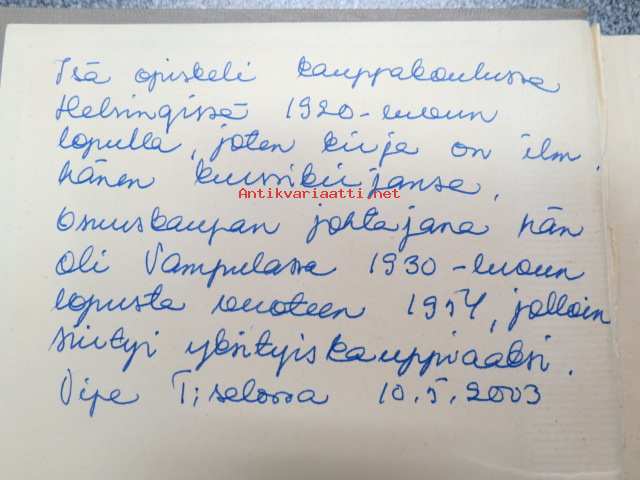 Isä opiskeli kauppakoulussa
Helsingissä 1920-luvun
lopulla, joten kirja on ilm.
hänen kurssikirjansa.
Antikvariaatti.net
Osuuskaupan johtajana hän
oli Vampulassa 1930-luvun
lopusta vuoteen 1954, jolloin
siirtyi yksityiskauppiaaksi.
10.5.2003